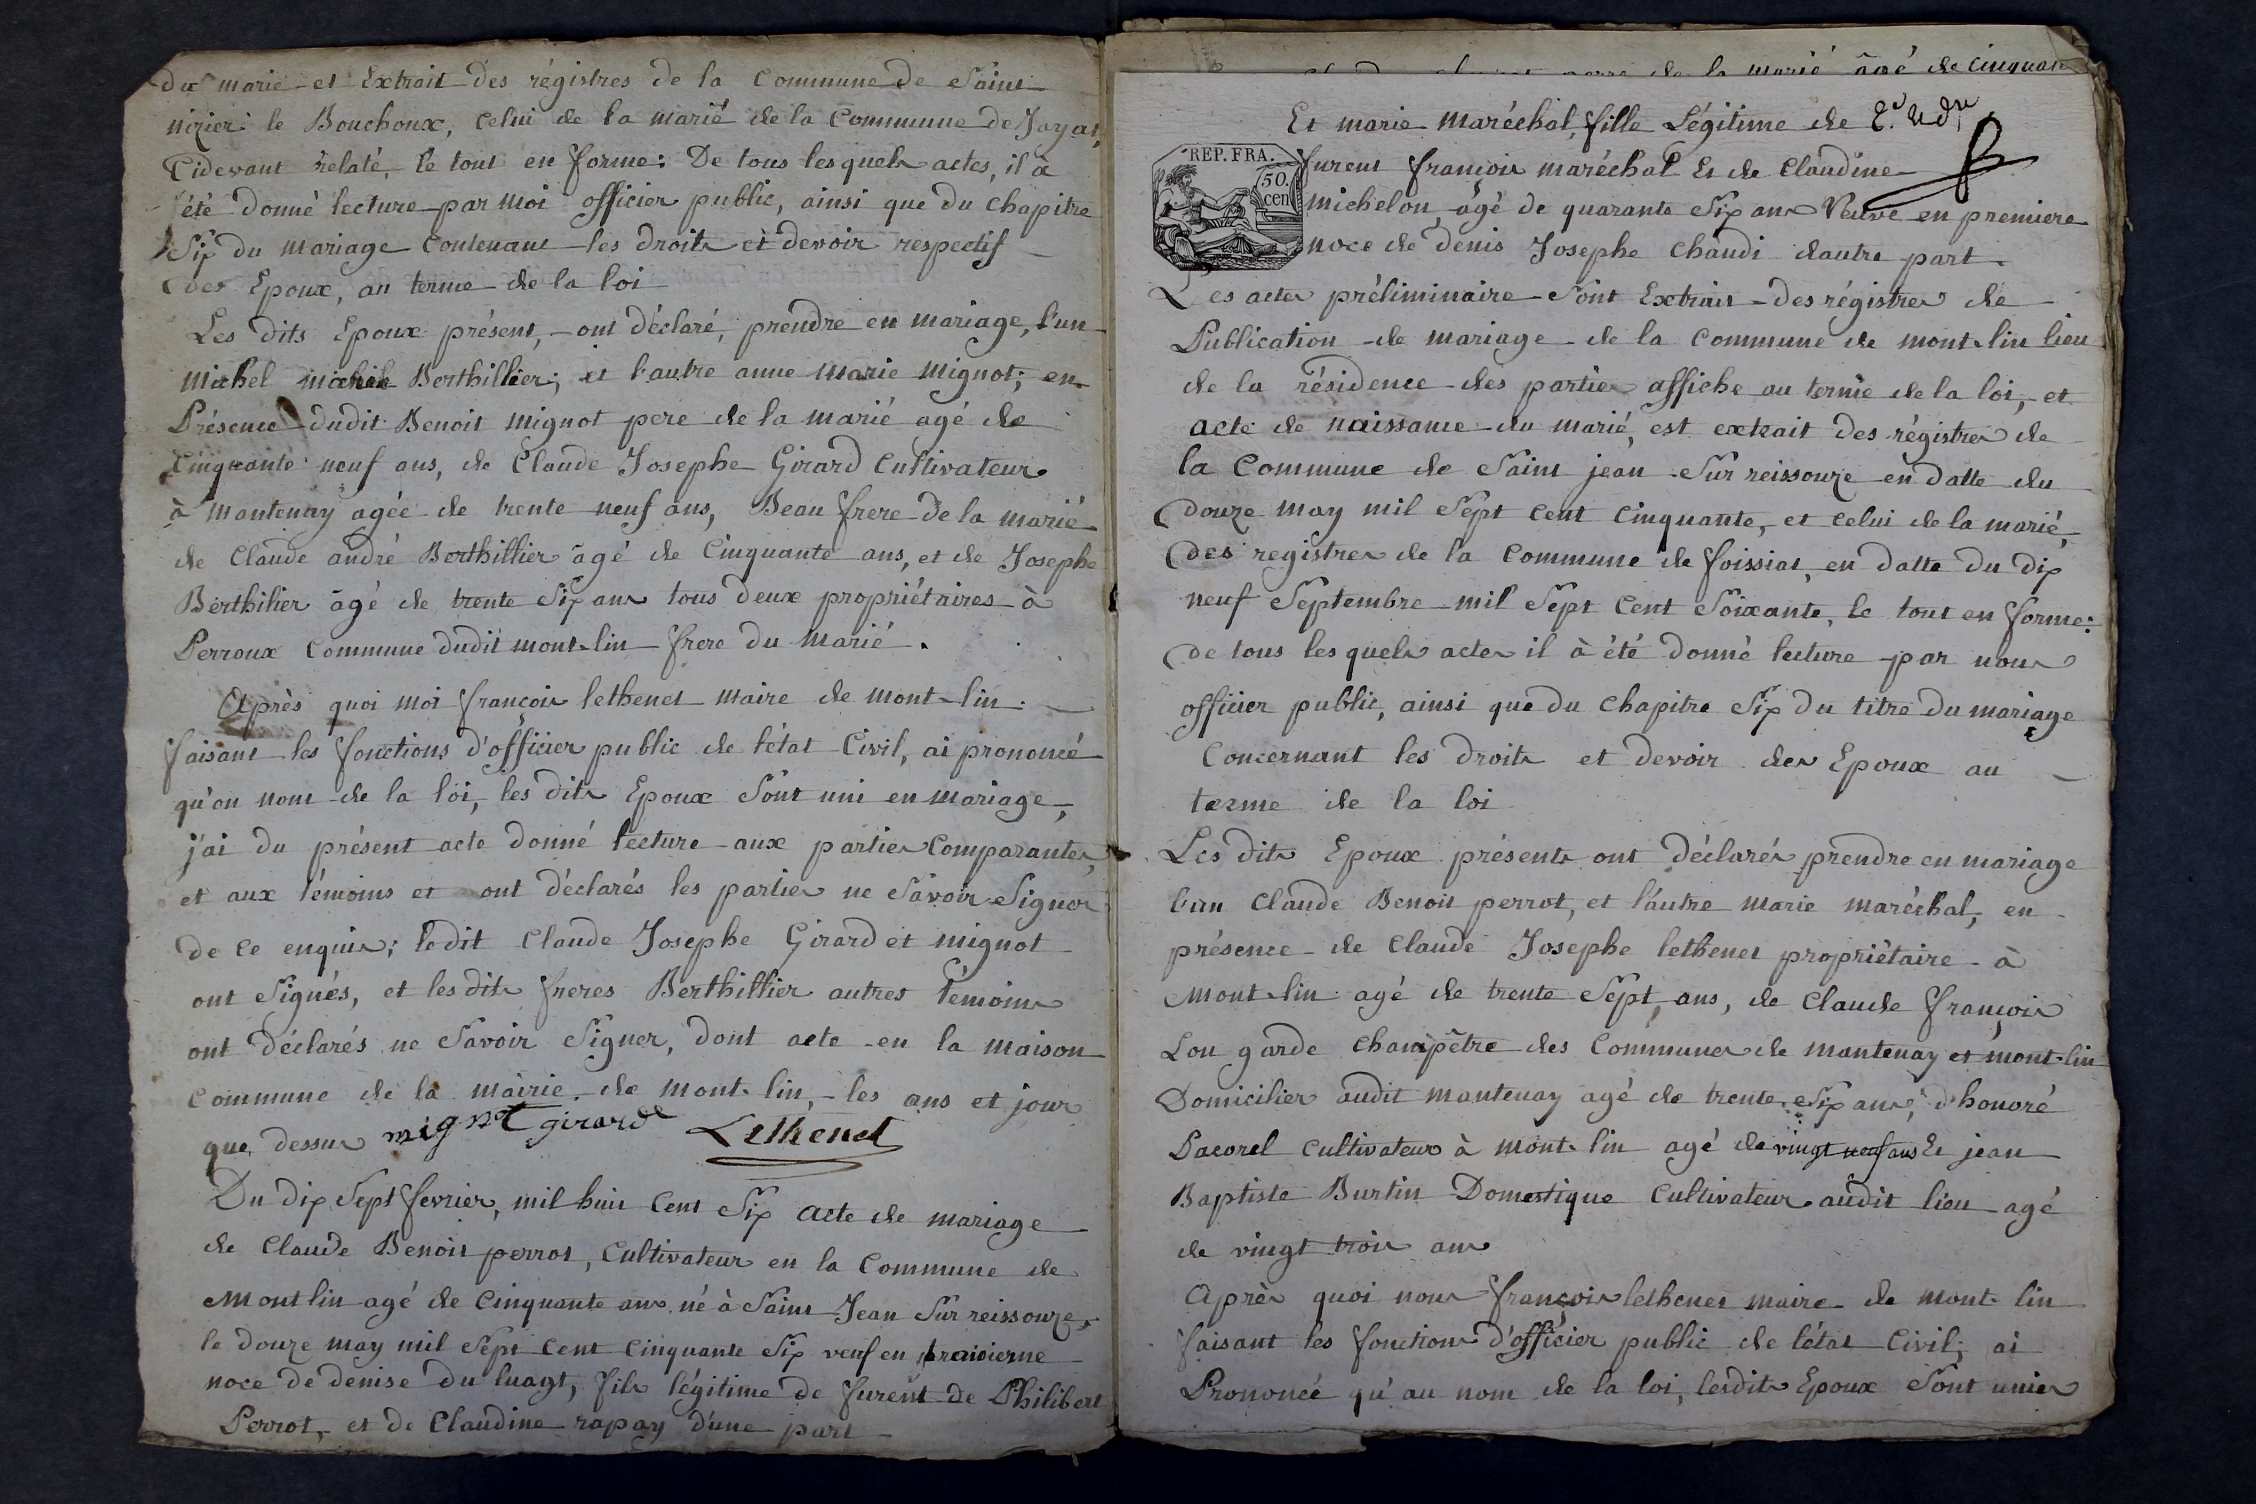 du marié et Extrait des régistres de la Commune de Saint
nizier le Bouchoux, celui de la marié de la Commune de Jayat,
Cidevant rélaté, le tout en forme: De tous lesquels actes, il à
été donné lecture par moi officier public, ainsi que du chapitre
Six du mariage Contenant les droits et devoir respectif
des Epoux, au terme de la loi
Les dits Epoux présent, ont déclaré, prendre en mariage, l'un
michel michel Berthillier; et l'autre anne Marie Mignot; en
Présence dudit Benoit Mignot pere de la marié agé de
Cinquante neuf ans, de Claude Josephe Girard Cultivateur
à Mantenay agée de trente neuf ans, Beau frere de la marié
de Claude andré Berthillier agé de Cinquante ans, et de Josephe
Berthilier âgé de trente Six ans tous deux propriétaires à
Perroux Commune dudit mont-lin frere du Marié.
Après quoi moi françois lethenet maire de mont-lin
faisant les fonctions d'officier public de l'état Civil, ai prononcé
qu'on nom de la loi, les dits Epoux Sont uni en mariage,
j'ai du présent acte donné lecture aux parties Comparantes,
et aux témoins et ont déclarés les parties ne Savoir Signer
de ce enquis; ledit Claude Josephe Girard et mignot
ont Signés, et les dits freres Berthillier autres témoins
ont déclarés ne Savoir Signer, dont acte en la maison
Commune de la mairie de mont-lin, les ans et jour
que dessus mignot girard Lethenet
Du dix Sept fevrier, mil huit Cent Six acte de mariage
de Claude Benoit perrot, Cultivateur en la Commune de
Montlin agé de Cinquante ans né à Saint Jean Sur reissouze,
le douze may mil Sept Cent Cinquante Six veuf en
noce de denise du luagt, fils légitime de furent de Philibert
Perrot, et de Claudine rapay d'une part
de la marié âgé de Cinquante
Et marie maréchal, fille Légitime de
REP. FRA.
50.
cen
furent françois maréchal Et de Claudine
michelon, agé de quarante Six ans Veuve en premiere
noce de denis Josephe Chaudi dautre part.
Les actes préliminaire Sont Extrait des régistres de
Publication de mariage de la Commune de mont-lin lieu
de la résidence des parties affiche au terme de la loi, et
acte de naissance du marié, est extrait des régistres de
la Commune de Saint jean Sur reissouze en datte du
douze May mil Sept Cent Cinquante, et celui de la marié,
des registres de la Commune de foissiat, en datte du dix
neuf Septembre mil Sept Cent Soixante, le tout en forme:
de tous lesquels actes il à été donné lecture par nous
officier public, ainsi que du Chapitre Six du titre du mariage
Concernant les droits et devoir des Epoux au
terme de la loi
Les dits Epoux présents ont déclarés prendre en mariage
l'un Claude Benoit perrot, et l'autre marie maréchal, en
présence de Claude Josephe lethenet propriétaire à
Mont-lin agé de trente Sept ans, de Claude françois
Lon garde champêtre des Communes de mantenay et mont-lin
Domicilier audit mantenay agé de trente Six ans, d'honoré
Pacorel Cultivateur à mont-lin agé de vingt neuf ans Et jean
Baptiste Burtin Domestique Cultivateur audit lieu agé
de vingt trois ans
Après quoi nous françois lethenet maire de mont-lin
faisant les fonctions d'officier public de l'état Civil; ai
Prononcé qu'au nom de la loi, lesdits Epoux Sont unies